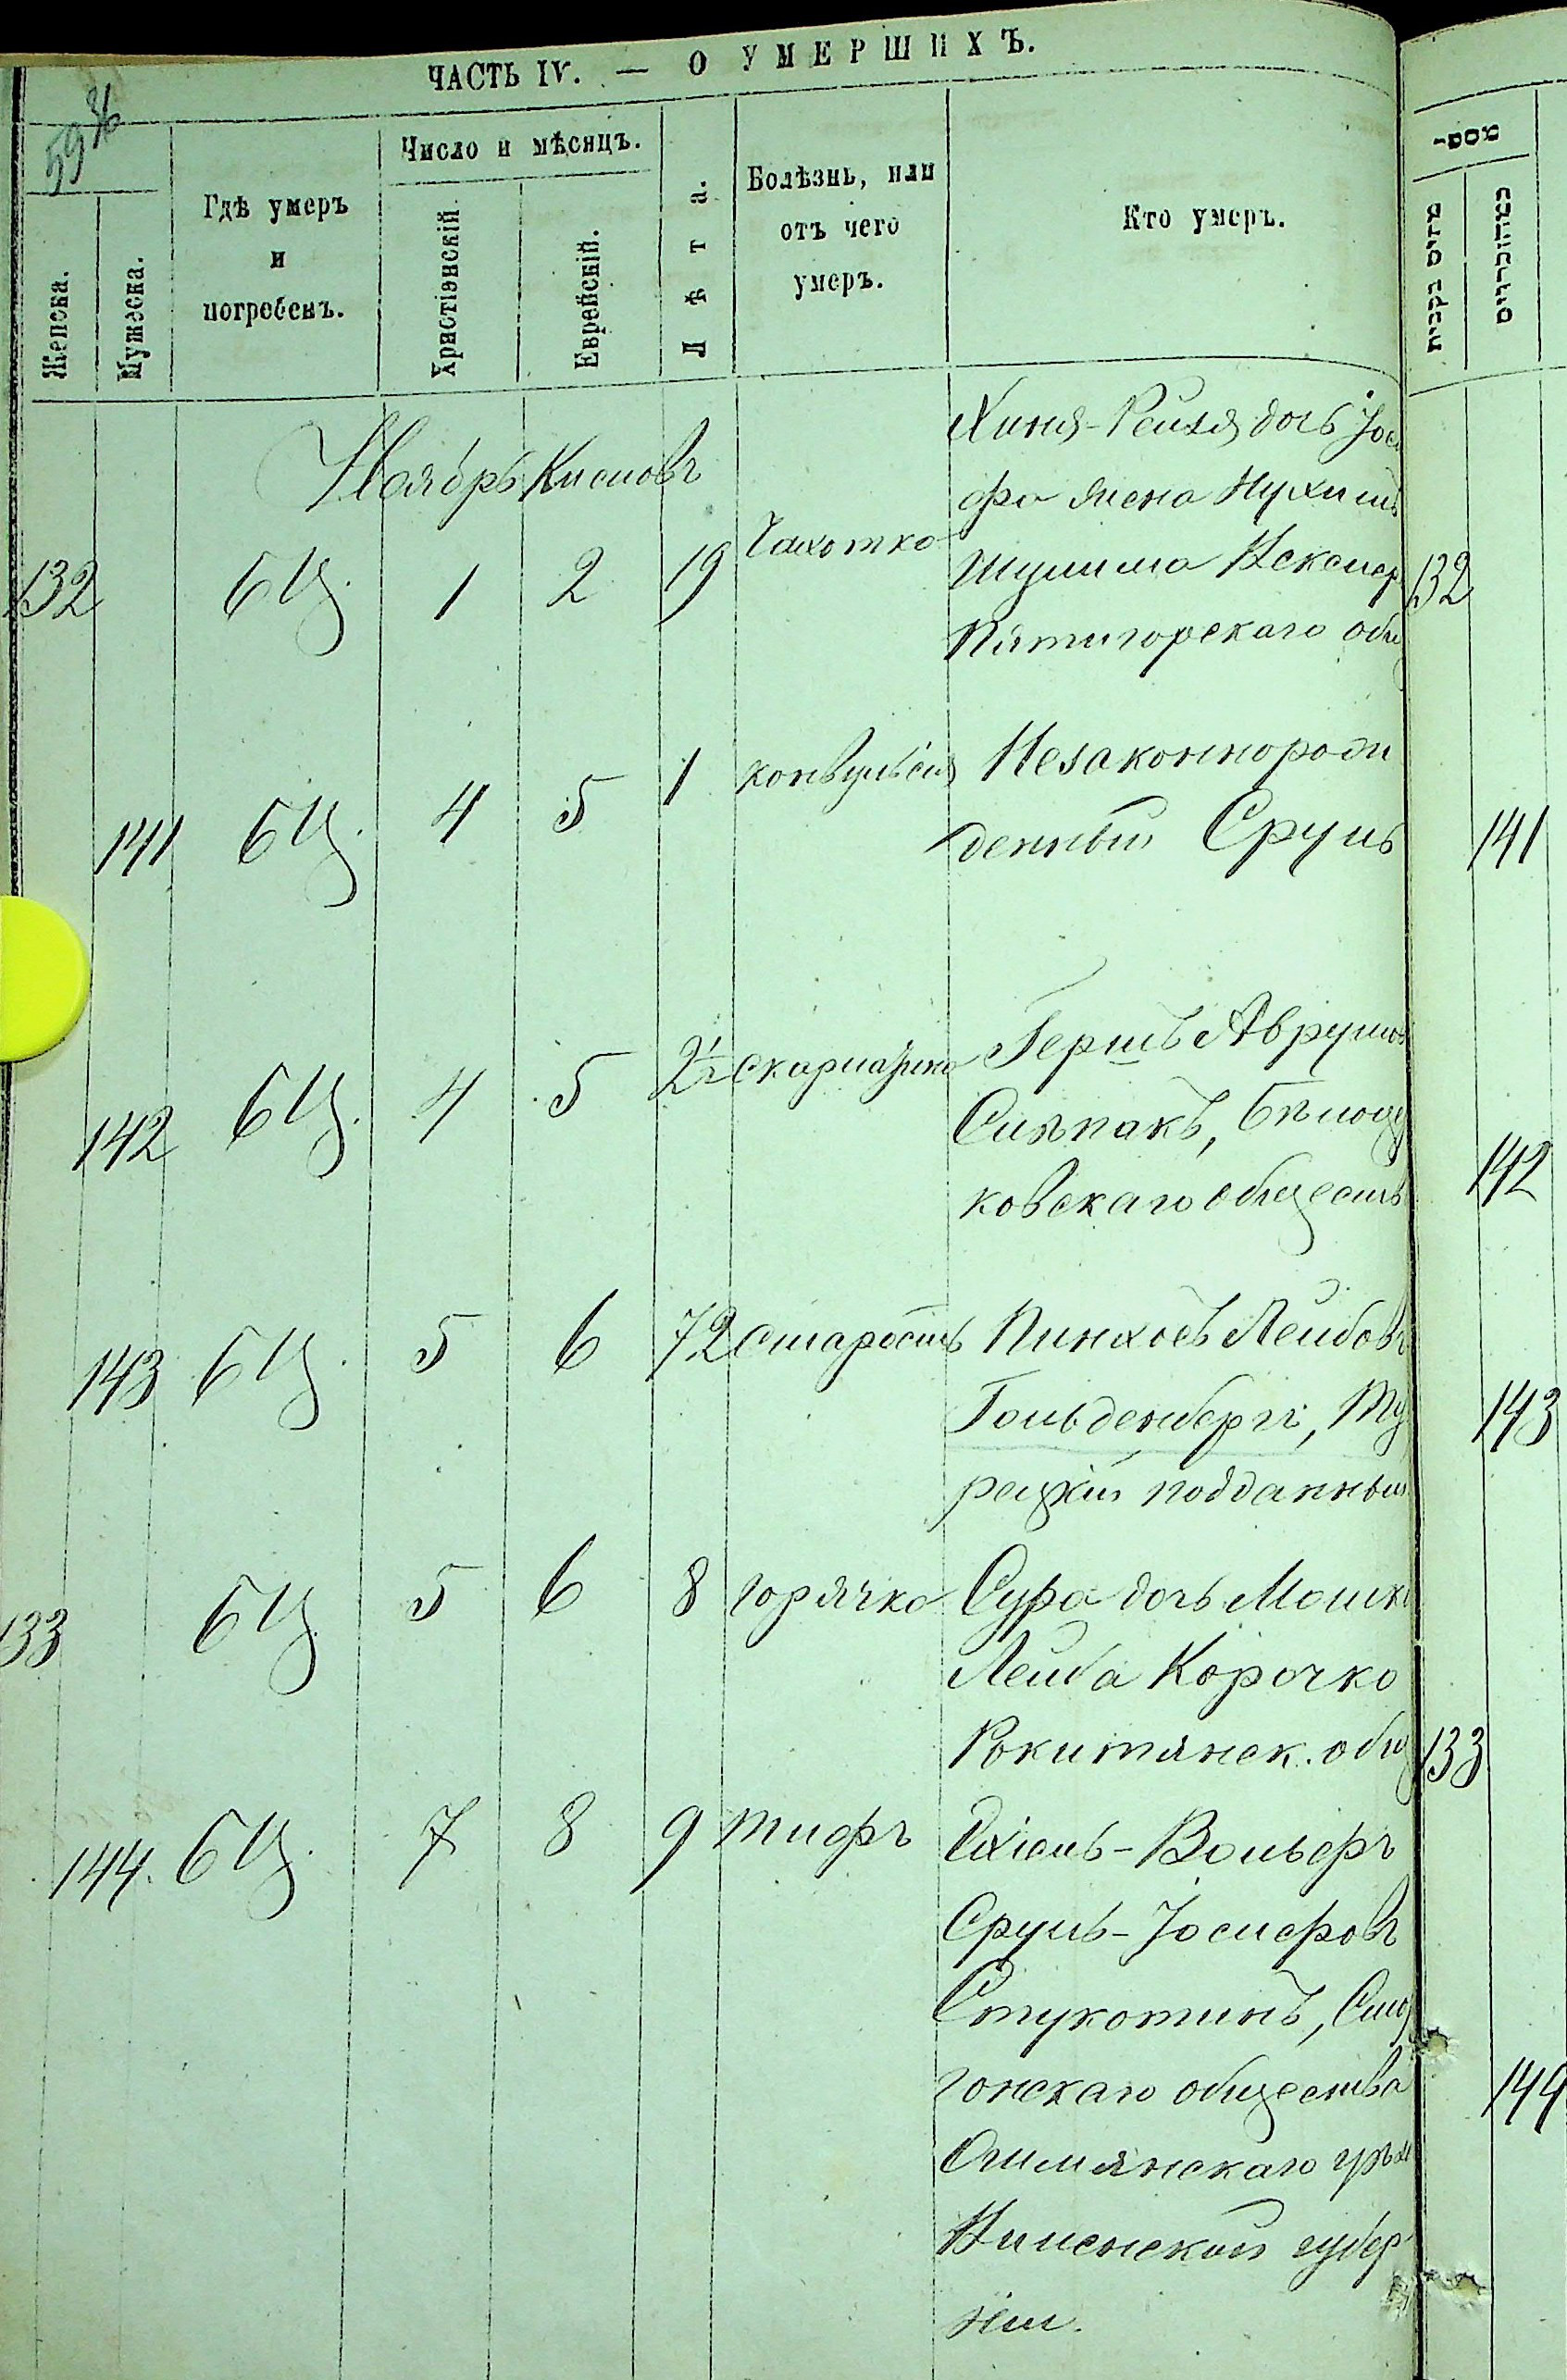 ЧАСТЬ IV. — О УМЕРШИХЪ.
59 36
Женска.
Мужеска.
Гдѣ умеръ
и
погребенъ.
Число и мѣсяцъ.
Христіэнскій.
Еврейскій.
Лѣта.
Болѣзнь, или
отъ чего
умеръ.
Кто умеръ.
מתים
נקבות
Ноябрь Кислевъ
132 БЦ. 1 2 19 Чахотка
Хиня-Рейзя дочь Іосе
фа жена Нухима
Шулима
Пятигорскаго общ
132
141 БЦ. 4 5 1 конвульсія Незаконнорож
денный Сруль
141
142 БЦ. 4 5 2½ скарлатина Гершъ Аврумов
Сляпакъ, Бѣлоцер
ковскаго обществ
142
143 БЦ. 5 6 72 старость Пинхосъ Лейбовъ
Гольденбергъ, Ту
рецкій подданный
143
133 БЦ. 5 6 8 горячка Сура дочь Мошк
Лейба Корочко
Рокитянск. общ
133
144. БЦ. 7 8 9 тифъ Ихіель-Вольфъ
Сруль-Іосифовъ
Стукотинъ, Смор
гонскаго общества
Ошмянскаго уѣзд
Виленской губер
ніи.
144